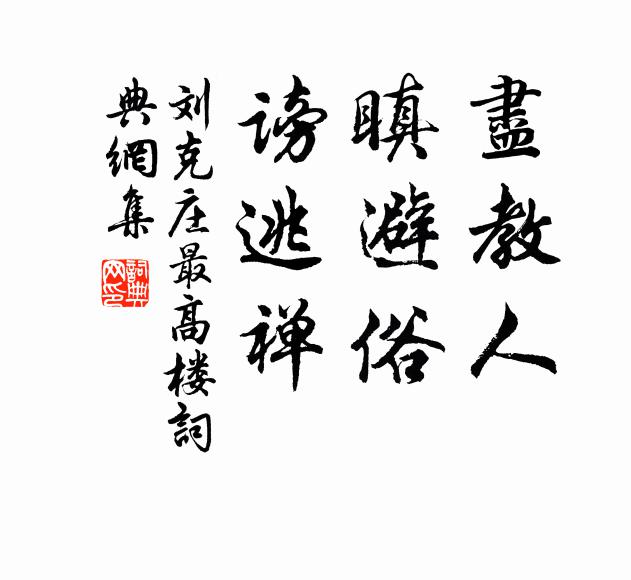 盡教人
瞋避俗
謗逃禅
刘克庄最高楼詞
典網集
詞典网印